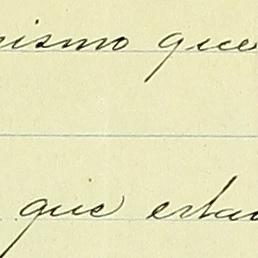 nismo que
que estau